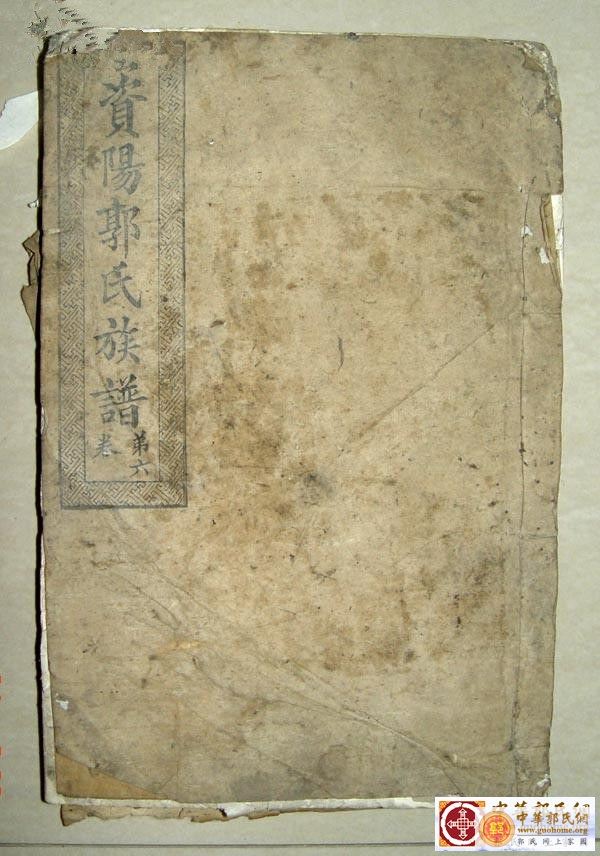 資陽郭氏族譜
第六
卷
中華郭氏網
www.guohome.org
郭氏网上家園